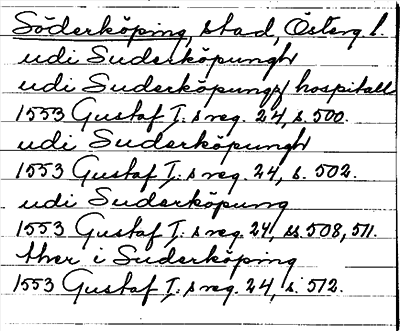 Söderköping, stad, Österg l.
udi Suderköpungh
udi Suderköpungz hospitall
1553 Gustaf I:s reg. 24, s. 500.
udi Suderköpungh
1553 Gustaf I:s reg. 24, s. 502.
udi Suderköpung
1553 Gustaf I:s reg. 24, ss 508, 511.
ther i Suderköping
1553 Gustaf I:s reg. 24, s. 512.